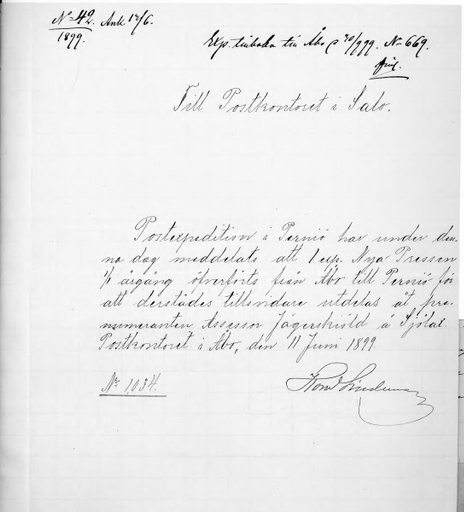 No 42. Ank 12/6.
1899.
Exp. tillbaka till Åbo d 30/9 99. No 669.
Till Postkontoret i Salo.
Postexpedition i Perniö har under den-
na dag meddelats att 1 exp. Nya Pressen
1/1 årgång öfverförts från Åbo till Perniö för
att derstädes tillsvidare utdelas åt pre-
numeranten Assessor Jägerskiöld å Sjölax.
Postkontoret i Åbo, den 11 Juni 1899.
No 1034.